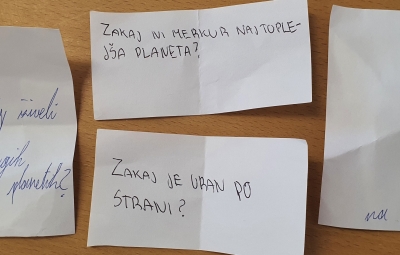 ZAKAJ NI MERKUR NAJTOPLE-
JŠA PLANETA?
ZAKAJ JE URAN PO
STRANI?
živeli
planetih?
na